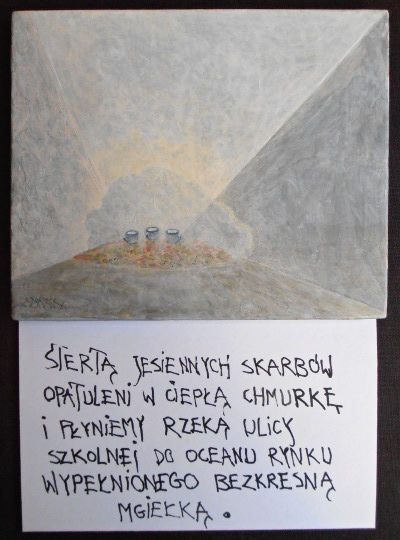 ŚTERTĄ JESIENNYCH SKARBÓW
OPATULENI W CIEPŁĄ CHMURKĘ
i PŁYNIEMY RZEKĄ ULICY
SZKOLNEJ DO OCEANU RYNKU
WYPEŁNIONEGO BEZKRESNĄ
MGIEŁKĄ.